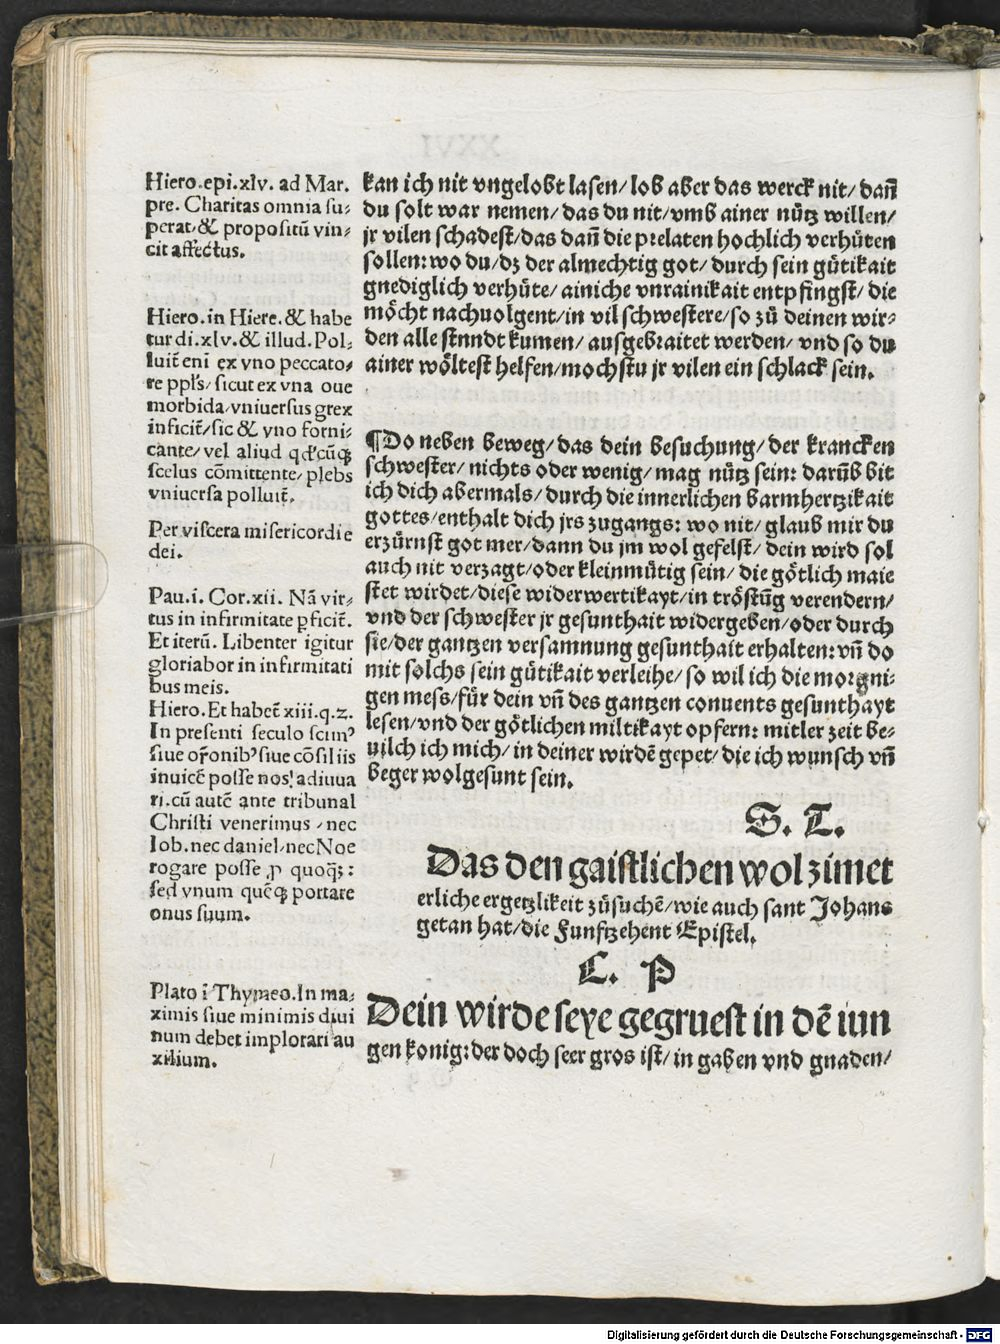 Hiero.epi.xlv. ad Mar.
pre. Charitas omnia su⸗
perat/& propositū vin⸗
cit affectus.
Hiero.in Hiere.& habe
tur di.xlv.& illud.Pol⸗
luit̄ eni ex vno peccato⸗
re ppl's/sicut ex vna oue
morbida/vniuersus grex
inficit̄/sic & vno forni⸗
cante/vel aliud qd'cūqꝫ
scelus cōmittente/plebs
vniuersa polluit̄.
Per viscera misericordie
dei.
Pau.i. Cor.xii. Nā vir⸗
tus in infirmitate ꝑficit̄.
Et iterū. Libenter igitur
gloriabor in infirmitati
bus meis.
Hiero.Et habet̄ xiii.q.2.
In presenti seculo scimꝰ
siue or̄onibꝰ siue cōsiliis
inuicē posse nos adiuua
ri.cū autē ante tribunal
Christi venerimus/nec
Iob.nec daniel/nec Noe
rogare posse ꝓ quoqꝫ:
sed vnum quēqꝫ portare
onus suum.
Plato ī Thymeo.In ma⸗
ximis siue minimis diui
num debet implorari au
xilium.
kan ich nit vngelobt lasen/lob aber das werck nit/dañ
du solt war nemen/das du nit/vmb ainer nütz willen/
jr vilen schadest/das dañ die prelaten hochlich verhüten
sollen: wo du/dz der almechtig got/durch sein gütikait
gnediglich verhüte/ainiche vnrainikait entpfingst/die
möcht nachuolgent/in vil schwestere/so zů deinen wir⸗
den alle stnndt kumen/ausgebraitet werden/vnd so du
ainer wöltest helfen/mochstu jr vilen ein schlack sein.
¶Do neben beweg/das dein besuchung/der krancken
schwester/nichts oder wenig/mag nütz sein: darūb bit
ich dich abermals/durch die innerlichen barmhertzikait
gottes/enthalt dich jrs zugangs: wo nit/glaub mir du
erzürnst got mer/dann du jm wol gefelst/dein wird sol
auch nit verzagt/oder kleinmütig sein/die götlich maie
stet wirdet/diese widerwertikayt/in tröstūg verendern/
vnd der schwester jr gesunthait widergeben/oder durch
sie/der gantzen versamnung gesunthait erhalten: vñ do
mit solchs sein gütikait verleihe/so wil ich die morgni⸗
gen mess/für dein vñ des gantzen conuents gesunthayt
lesen/vnd der götlichen miltikayt opfern: mitler zeit be⸗
uilch ich mich/in deiner wirdē gepet/die ich wunsch vñ
beger wolgesunt sein.
S. T.
Das den gaistlichen wol zimet
erliche ergetzlikeit zůsuchē/wie auch sant Johans
getan hat/die Funftzehent Epistel.
C. P
Dein wirde seye gegruest in dē iun
gen konig: der doch seer gros ist/in gaben vnd gnaden/
Digitalisierung gefördert durch die Deutsche Forschungsgemeinschaft - DFG